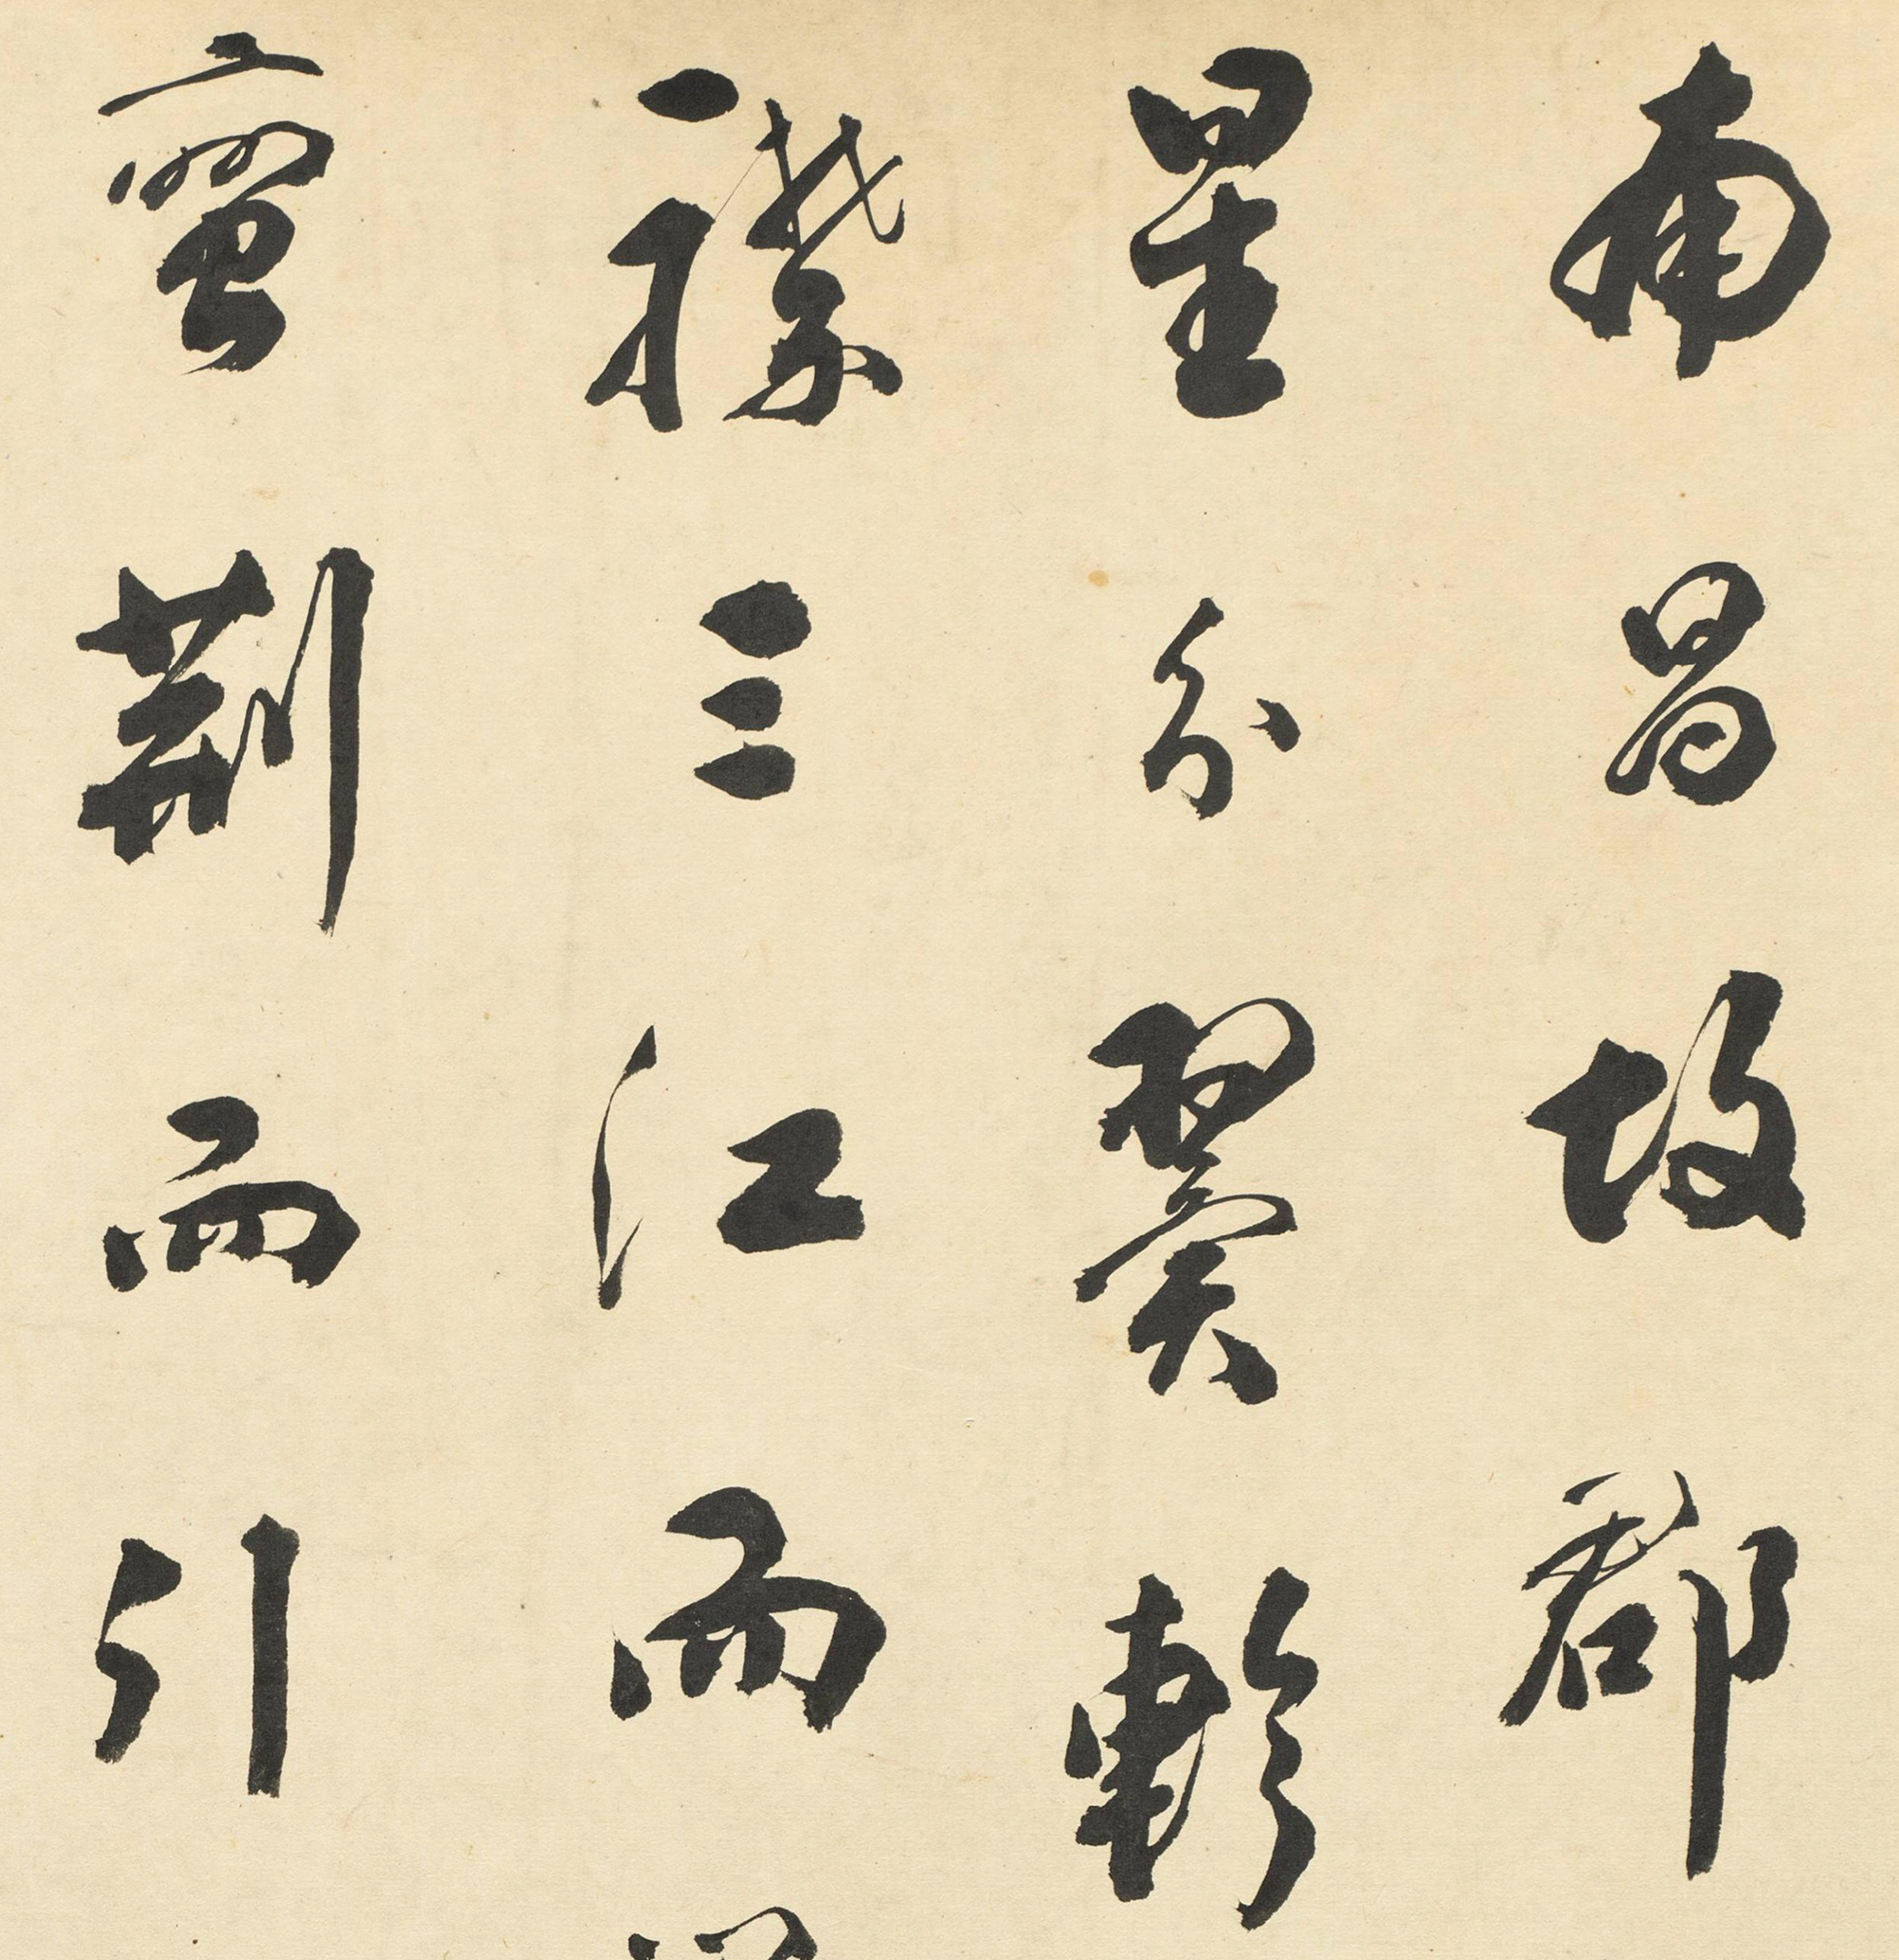 南昌故郡
星分翼軫
襟三江而
蠻荆而引